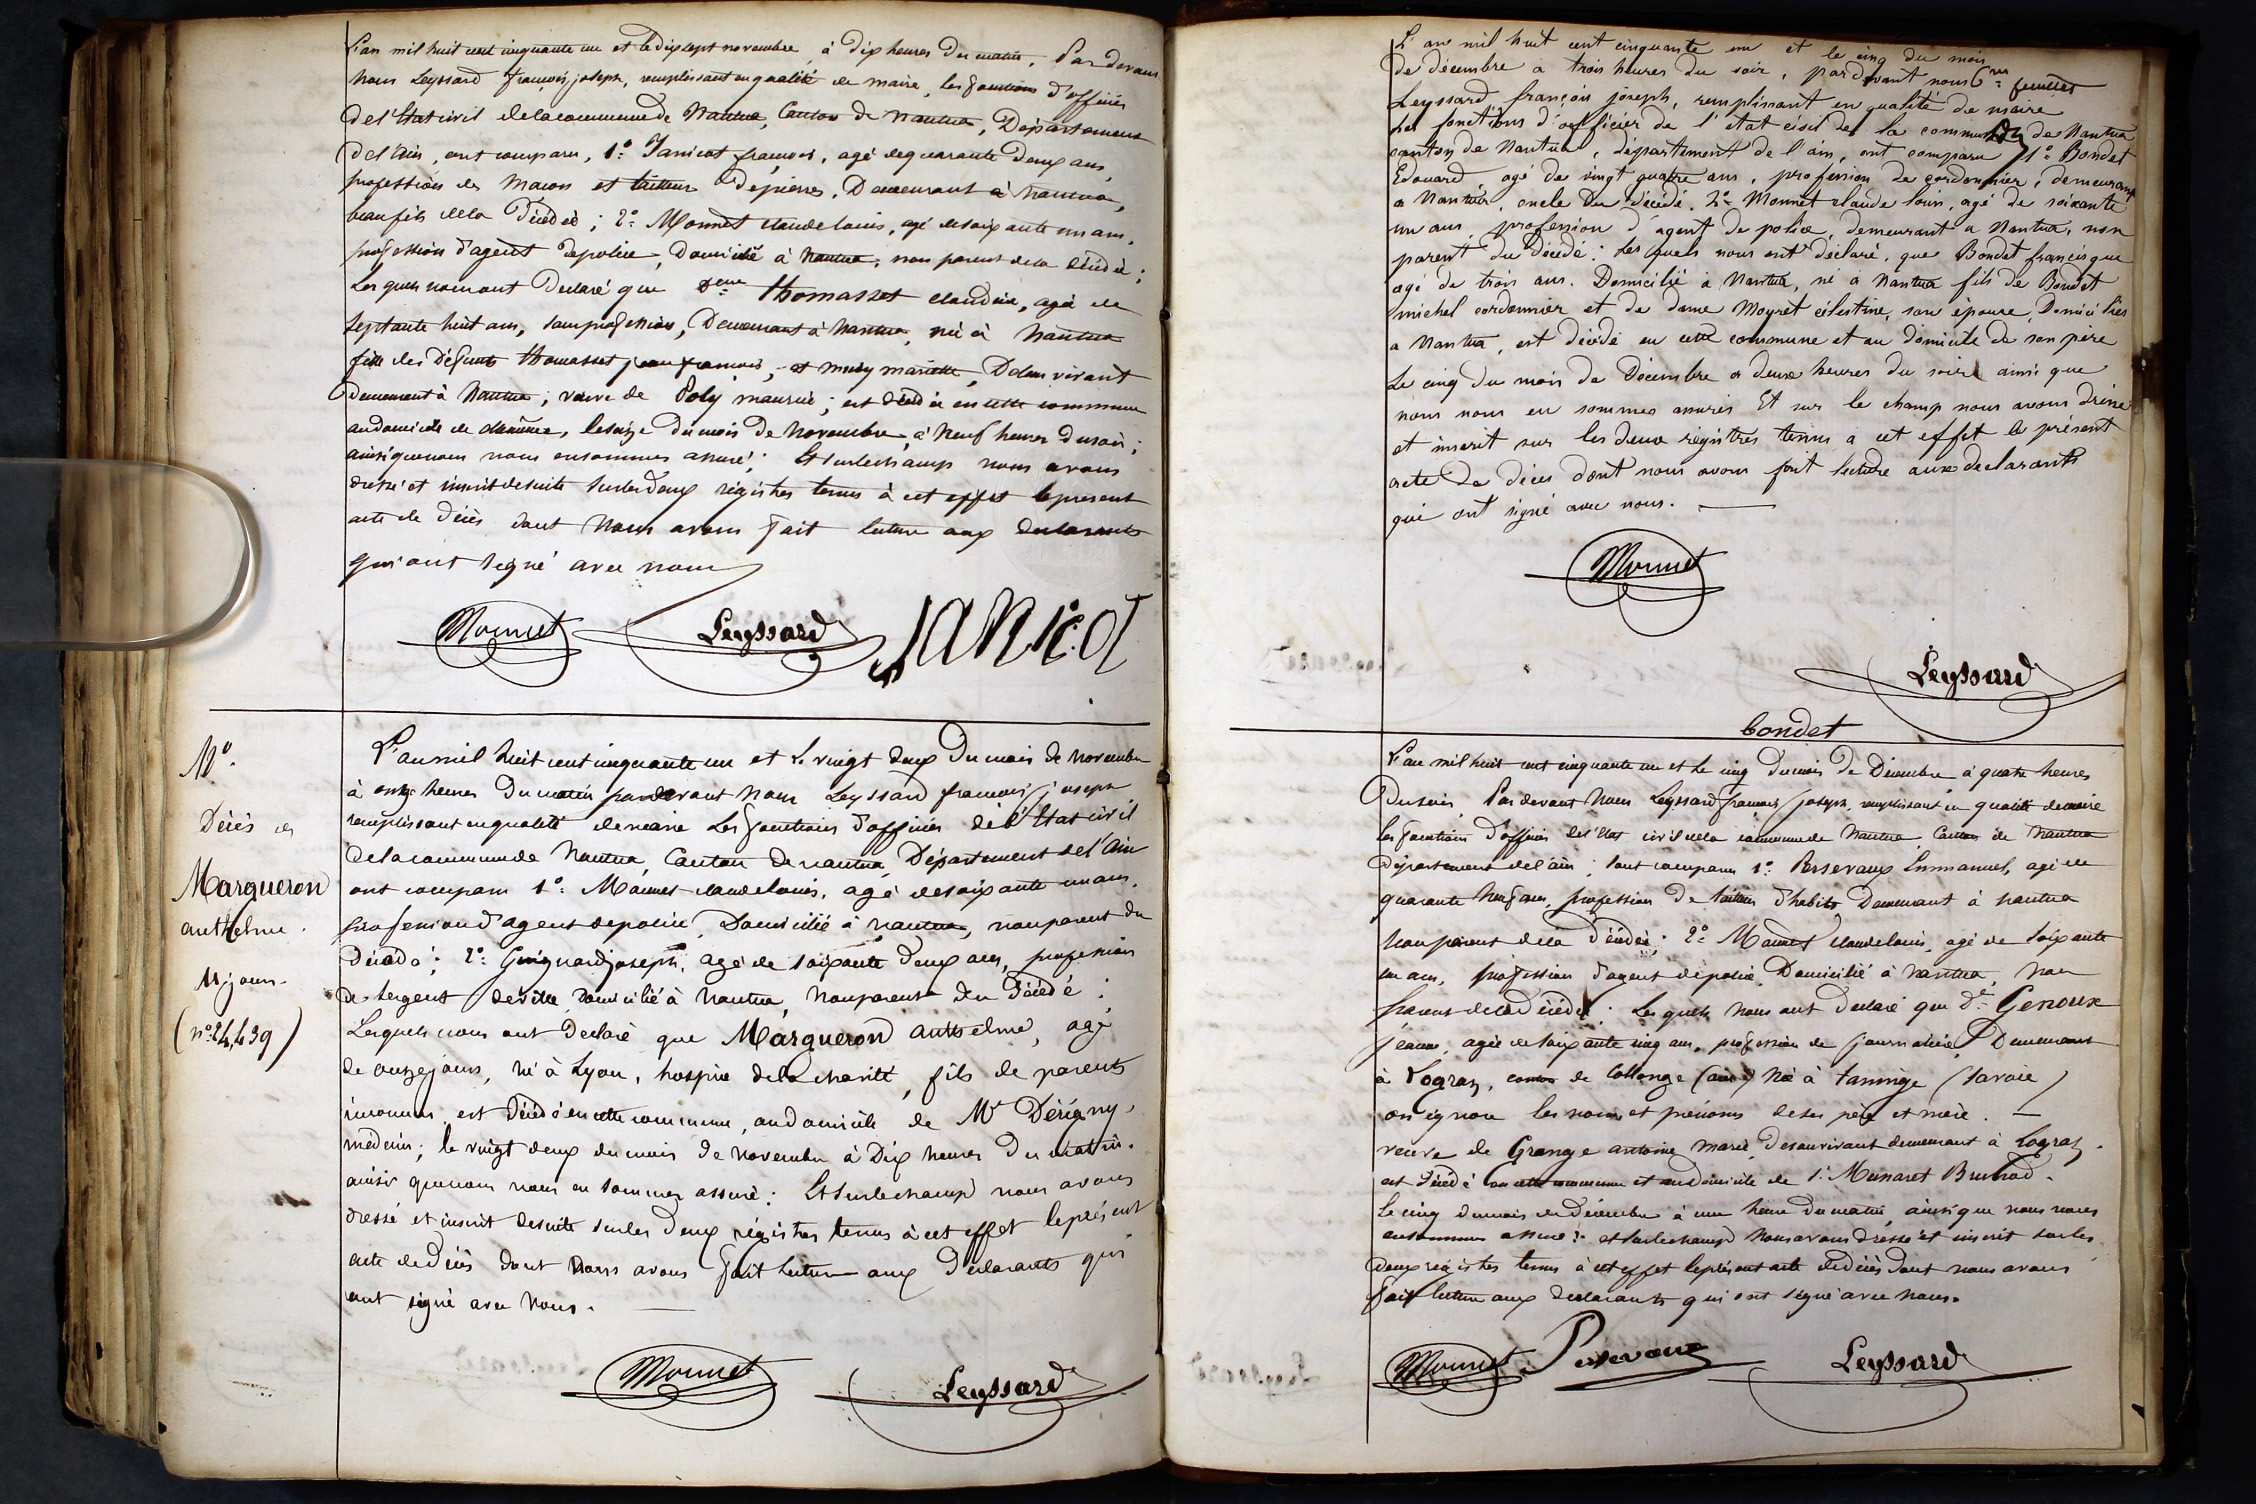 L'an mil huit cent cinquante un et le dix sept novembre, à dix heures du matin. Par devant
Nous Leyssard françois, joseph, remplissant en qualité de maire, les fonctions d'officier
de l'Etat civil de la commune de Nantua, Canton de Nantua, Département
de l'ain, ont comparu, 1º Janicot françois, agé de quarante deux ans,
profession de Macon et tailleur de pierres, Demeurant à Nantua,
beau fils de la Décédée ; 2º Monnet claude louis, agé de soixante un ans,
profession d'agent de police, Domicilié à Nantua, non parent de la Décédée ;
Lesquels nous ont Déclaré que Thomasset claudine, agée de
septante huit ans, sans profession, Demeurant à Nantua, née à Nantua
fille des Défunts Thomasset jean françois, et mariette, De leur vivant
demeurant à Nantua ; veuve de Poly maurice ; est Décédée en cette commune
au domicile de , le seize du mois de Novembre, à Neuf heures du soir ;
ainsi que nous nous en sommes assuré ; Et sur le champ nous avons
dressé et inscrit de suite sur les deux régistres tenus à cet effet le present
acte de Décès dont Nous avons fait lecture aux declarants
qui ont signé avec nous
Monnet Leyssard JANICOT
Nº.
Décès de
Marqueron
anthelme.
11 jours.
(nº 24,439)
L'an mil huit cent cinquante un et le vingt deux du mois de Novembre
à onze heures du matin pardevant Nous Leyssard francois joseph
remplissant en qualité de maire Les fonctions d'officier de l'Etat civil
de la commune de Nantua, Canton de nantua, Département de l'Ain
ont comparu 1º. Monnet claude louis, agé de soixante un ans,
profession d'agent de police, Domicilié à nantua, non parent du
Décédé ; 2º. Guignard joseph, agé de soixante deux ans, profession
de sergent de ville domicilié à Nantua, Non parent du Décédé :
Lesquels nous ont Déclaré que Marqueron anthelme, agé
de onze jours, né à Lyon, hospice de la charité, fils de parents
inconnus, est Décédé en cette commune, au domicile de Mr Dérigny,
médecin ; le vingt deux du mois de novembre à Dix heures du matin.
ainsi que nous nous en sommes assuré : Et sur le champ nous avons
dressé et inscrit de suite sur les deux régistres tenus à cet effet le présent
acte de Décès dont Nous avons fait lecture aux Déclarants qui
ont signé avec Nous.
Monnet Leyssard
L'an mil huit cent cinquante un et le cinq du mois
de décembre à trois heures du soir, pardevant nous
Leyssard françois joseph, remplissant en qualité de maire
les fonctions d'officier de l'état civil de la commune de Nantua
canton de Nantua, département de l'ain, ont comparu 1º Bondet
Edouard agé de vingt quatre ans, profession de cordonnier, demeurant
à Nantua, oncle du décédé. 2º Monnet claude louis, agé de soixante
un ans, profession d'agent de police, demeurant à Nantua, non
parent du décédé : lesquels nous ont déclaré, que Bondet francisque
agé de trois ans. Domicilié à Nantua, né à Nantua fils de Bondet
michel cordonnier et de dame Moyret célestine, son épouse, Domiciliés
à Nantua, est décédé en cette commune et au domicile de son père
Le cinq du mois de Décembre à deux heures du soir ainsi que
nous nous en sommes assurés Et sur le champ nous avons dréssé
et inscrit sur les deux régistres tenus à cet effet le présent
acte de décès dont nous avons fait lecture aux declarants
qui ont signé avec nous.
Monnet
Leyssard
bondet
L'an mil huit cent cinquante un et le cinq du mois de Décembre à quatre heures
Du soir, Par devant Nous Leyssard françois joseph, remplissant en qualité de maire
les fonctions d'officier de l'état civil de la commune de Nantua, Canton de Nantua
département de l'ain ; sont comparus 1º. Persevaux Emmanuel, agé de
quarante neuf ans, profession de tailleur d'habits Demeurant à nantua
Non parent de la décédée ; 2º Monnet claude louis, agé de soixante
un ans, profession d'agent de police, Domicilié à Nantua, non
parent de la Décédée ; Lesquels Nous ont Déclaré que De Genoux
jeanne, agée de soixante cinq ans, profession de journalière, Demeurant
à Logras, canton de Collonge (ain) Née à taninge (savoie)
on ignore les noms et prénoms de ses père et mère.
veuve de Grange antoine marie, de son vivant demeurant à Logras.
est Décédé en cette commune et au domicile de
Le cinq du mois de décembre à une heure du matin, ainsi que nous nous
en sommes assuré : et sur le champ Nous avons dressé et inscrit sur les
deux régistres tenus à cet effet le présent acte de décès dont nous avons
fait lecture aux declarants qui ont signé avec Nous.
Monnet Persevaux Leyssard